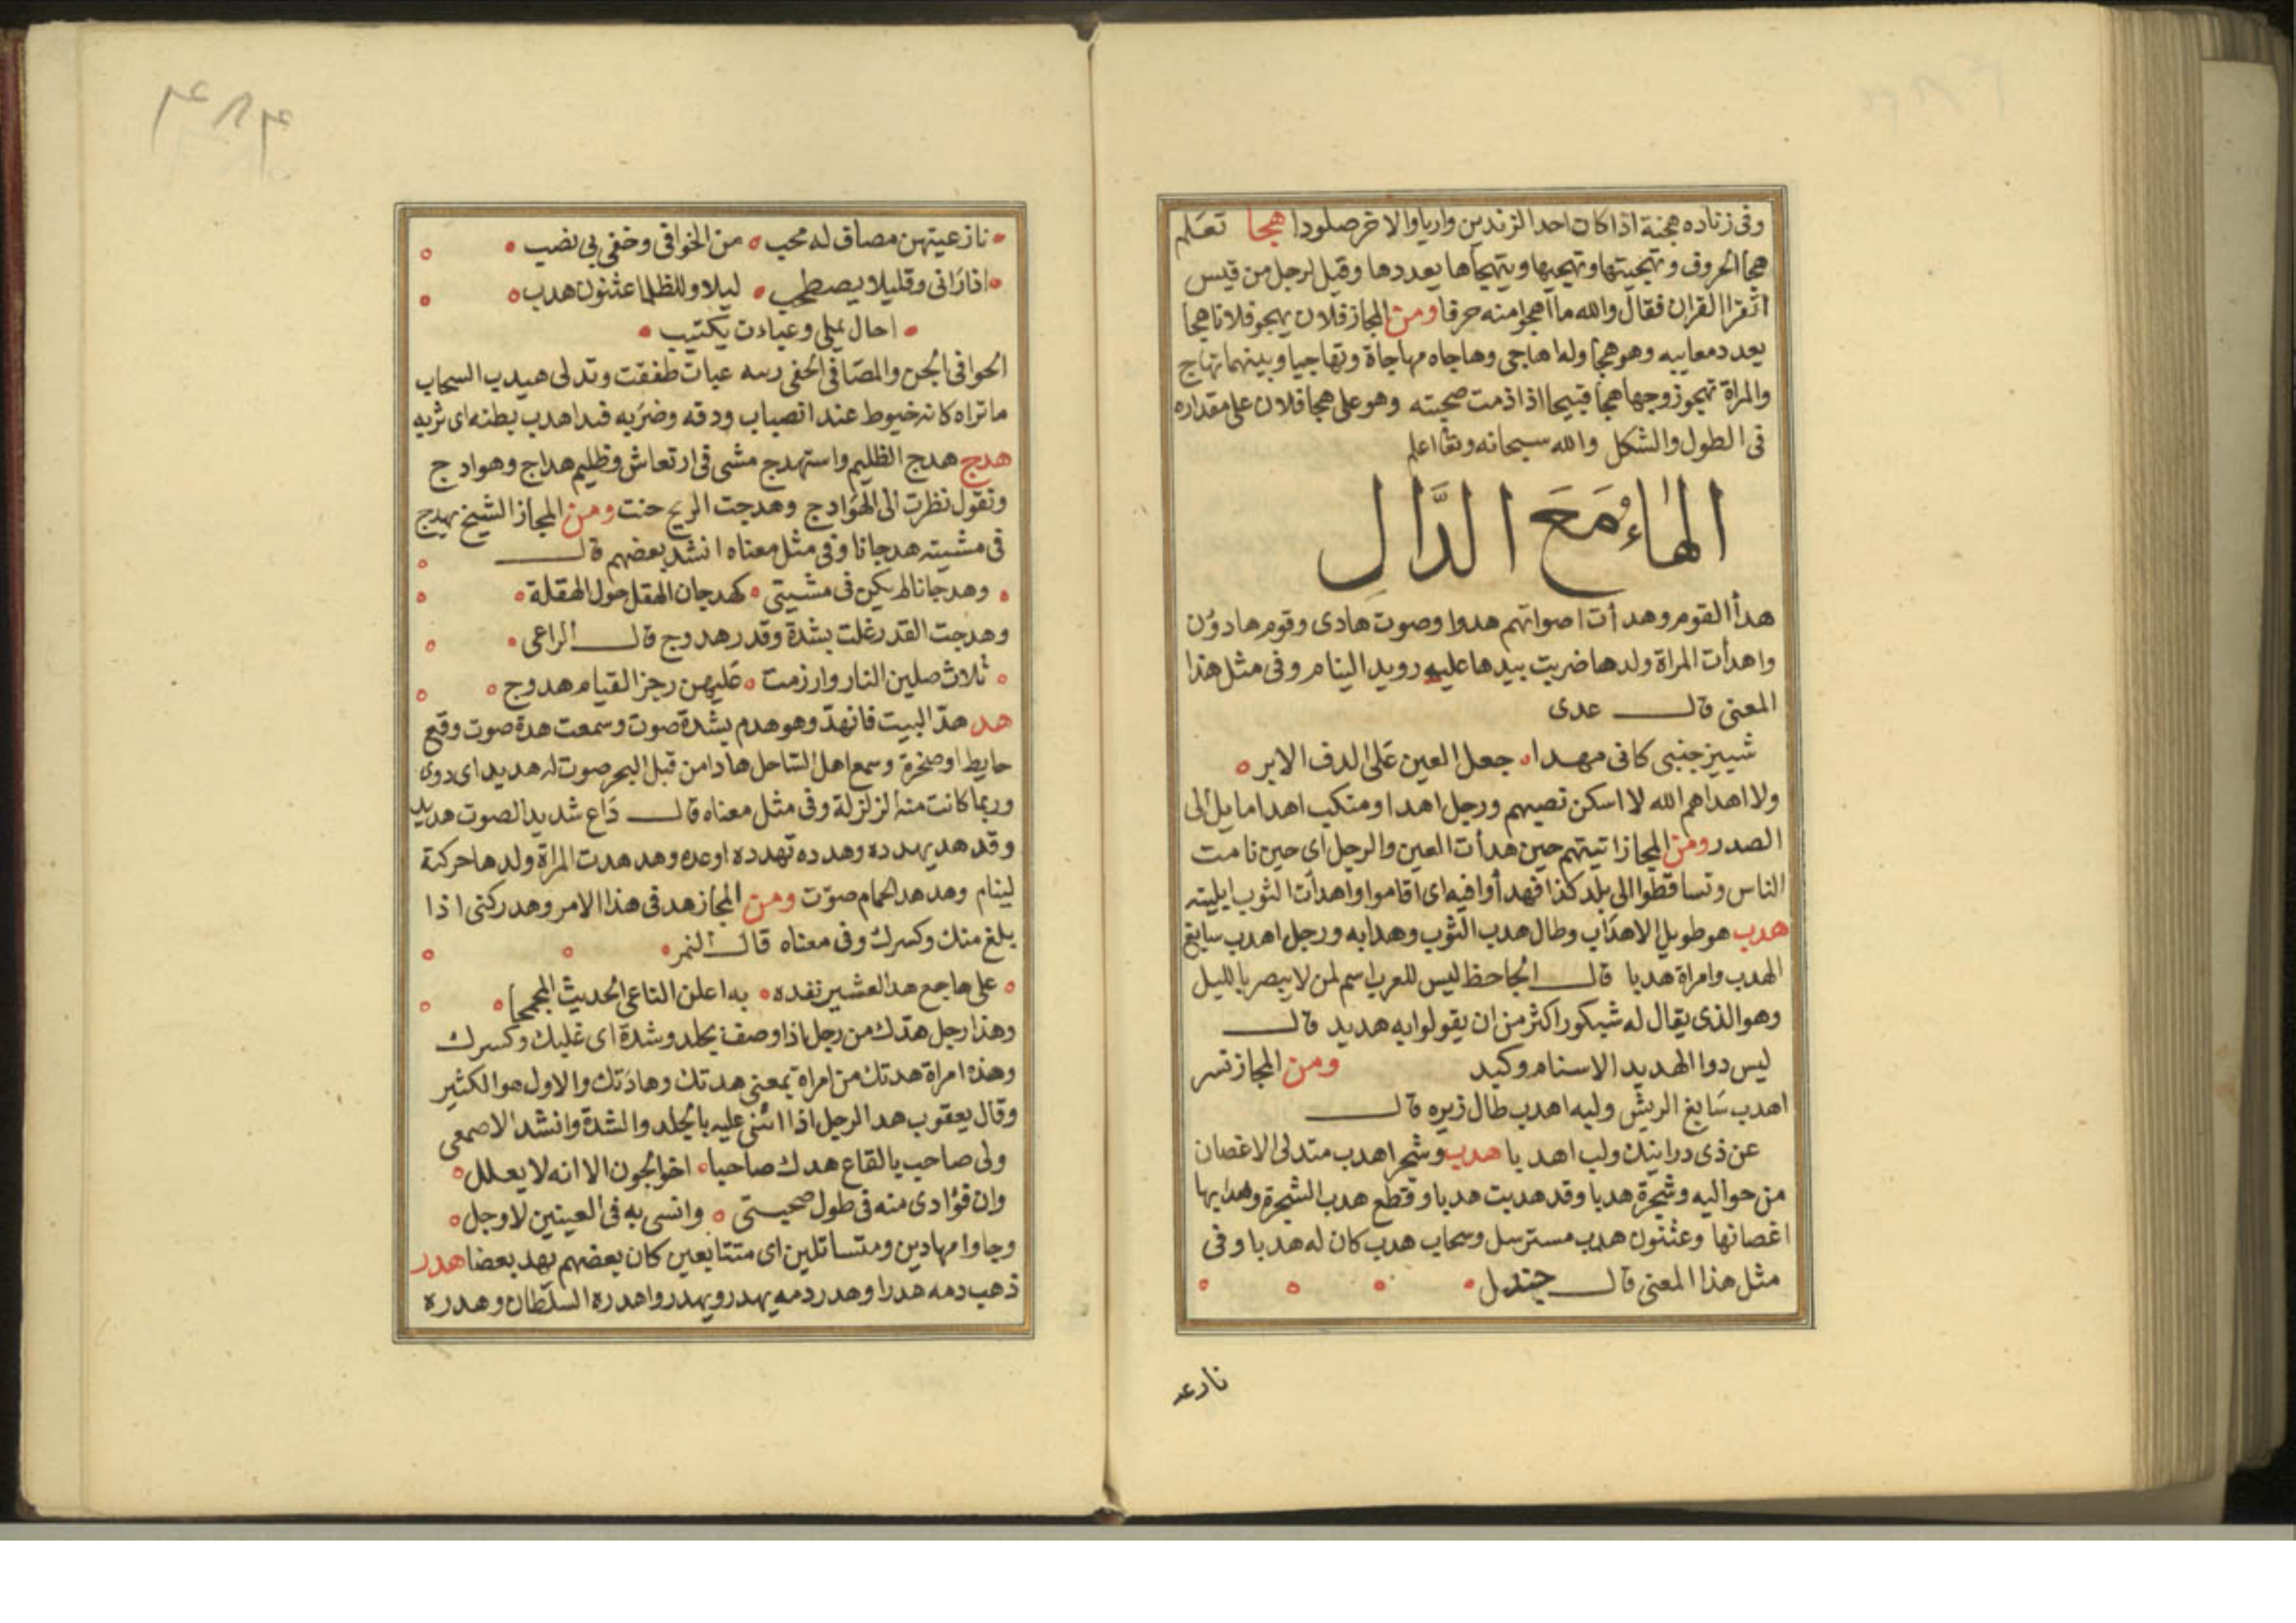 وفى زناده هجنة اذا كان احد الزندين واريا والاخر صلودا هجا تعلم
هجا الحروف وتهجيتها وتهجيها ويتهجاها يعددها وقيل لرجل من قيس
اتقرا القران فقال والله ما اهجوا منه حرفا ومن المجاز فلان يهجو فلانا هجا
يعدد معاييه وهو هجا وله اهاجى وهاجاه مهاجاة وتهاجيا وبينهما تهاج
والمراة تهجو زوجها هجا قبيحا اذا ذمت صحبته وهو على هجا فلان على مقداره
فى الطول والشكل والله سبحانه وتعا اعلم
الهاءُ مَعَ الدَّالِ
هدأ القوم وهدأت اصواتهم هدوا وصوت هادى وقوم هادؤن
واهدأت المراة ولدها ضربت بيدها عليه رويد الينام وفى مثل هذا
المعنى قال عدى
شييز جنبى كانى مهدا جعل العين على الدف الابر
ولا اهداهم الله لا اسكن نصبهم ورجل اهدا ومنكب اهدا مايل الى
الصدر ومن المجاز اتيتهم حين هدأت العين والرجل اى حين نامت
الناس وتساقطوا الى بلد كذا فهدأوا فيه اى اقاموا واهدأت الثوب ابليته
هدب هو طويل الاهداب وطال هدب الثوب وهدابه ورجل اهدب سابغ
الهدب وامراة هدبا قال الجاحظ ليس للعرب اسم لمن لا يبصر بالليل
وهو الذى يقال له شبكور اكثر من ان يقولوا به هديد قال
ليس دوا الهديد الا سنام وكبد ومن المجاز نسر
اهدب سابغ الريش ولبه اهدب طال زبره قال
عن ذى درانيك ولب اهدبا هدب وشجر اهدب متدلى الاغصان
من حواليه وشجرة هدبا وقد هدبت هدبا وقطع هدب الشجرة وهدابها
اغصانها وعثنون هدب مسترسل وسحاب هدب كان له هدبا وفى
مثل هذا المعنى قال جندل
نازعـ
٣٨٣
نازعيتهن مصاف له محب من الخوافى وخفى بى نصب
اذا رانى وقليلا يصطحب ليلا وللظلما عثنون هدب
احال يملى وعبادت يكتيب
الحوافى الجن والمصافى الخفى رسه عبات طفقت وتدلى هيدب السحاب
ما تراه كانه خيوط عند انصباب ودقه وضربه فبدا هدب بطنه اى ثربه
هدج هدج الظليم واستهدج مشى فى ارتعاش وظليم هداج وهوادج
وتقول نظرت الى الهوادج وهدجت الريح حنت ومن المجاز الشيخ يهدج
فى مشيته هدجانا وفى مثل معناه انشد بعضهم قال
وهدجانا لم يكن فى مشيتى كهدجان الهقل حول الهقلة
وهدجت القدر غلت بشدة وقدر هدوج قال الراعى
ثلاث صلين النار وارزمت عليهن رجز القيام هدوج
هد هد البيت فانهد وهو هدم بشدة صوت وسمعت هدة صوت وقع
حايط او صخرة وسمع اهل الساحل هادا من قبل البحر صوت له هديد اى دوى
وربما كانت منه الزلزلة وفى مثل معناه قال داع شديد الصوت هديد
وقد هد يهد ده وهدده تهدده اوعده وهدهدت المراة ولدها حركته
لينام وهدهد الحمام صوت ومن المجاز هد فى هذا الامر وهد ركنى اذا
بلغ منك وكسرك وفى معناه قال النمر
على هاجع هد العشير نفده به اعلن الناعى الحديث المجمجا
وهذا رجل هدك من رجل اذا وصف بجلد وشدة اى غلبك وكسرك
وهذه امراة هدتك من امراة بمعنى هدتك وهادتك والاول هو الكثير
وقال يعقوب هد الرجل اذا اثنى عليه بالجلد والشدة وانشد الاصمعى
ولى صاحب بالقاع هدك صاحبا اخو الجون الا انه لا يعلل
وان فؤادى منه فى طول صحبتى وانسى به فى العينين لاوجل
وجاوا مهادين ومتساتلين اى متتابعين كان بعضهم يهد بعضا هدر
ذهب دمه هدرا وهدر دمه يهدر ويهدر واهدره السلطان وهدره